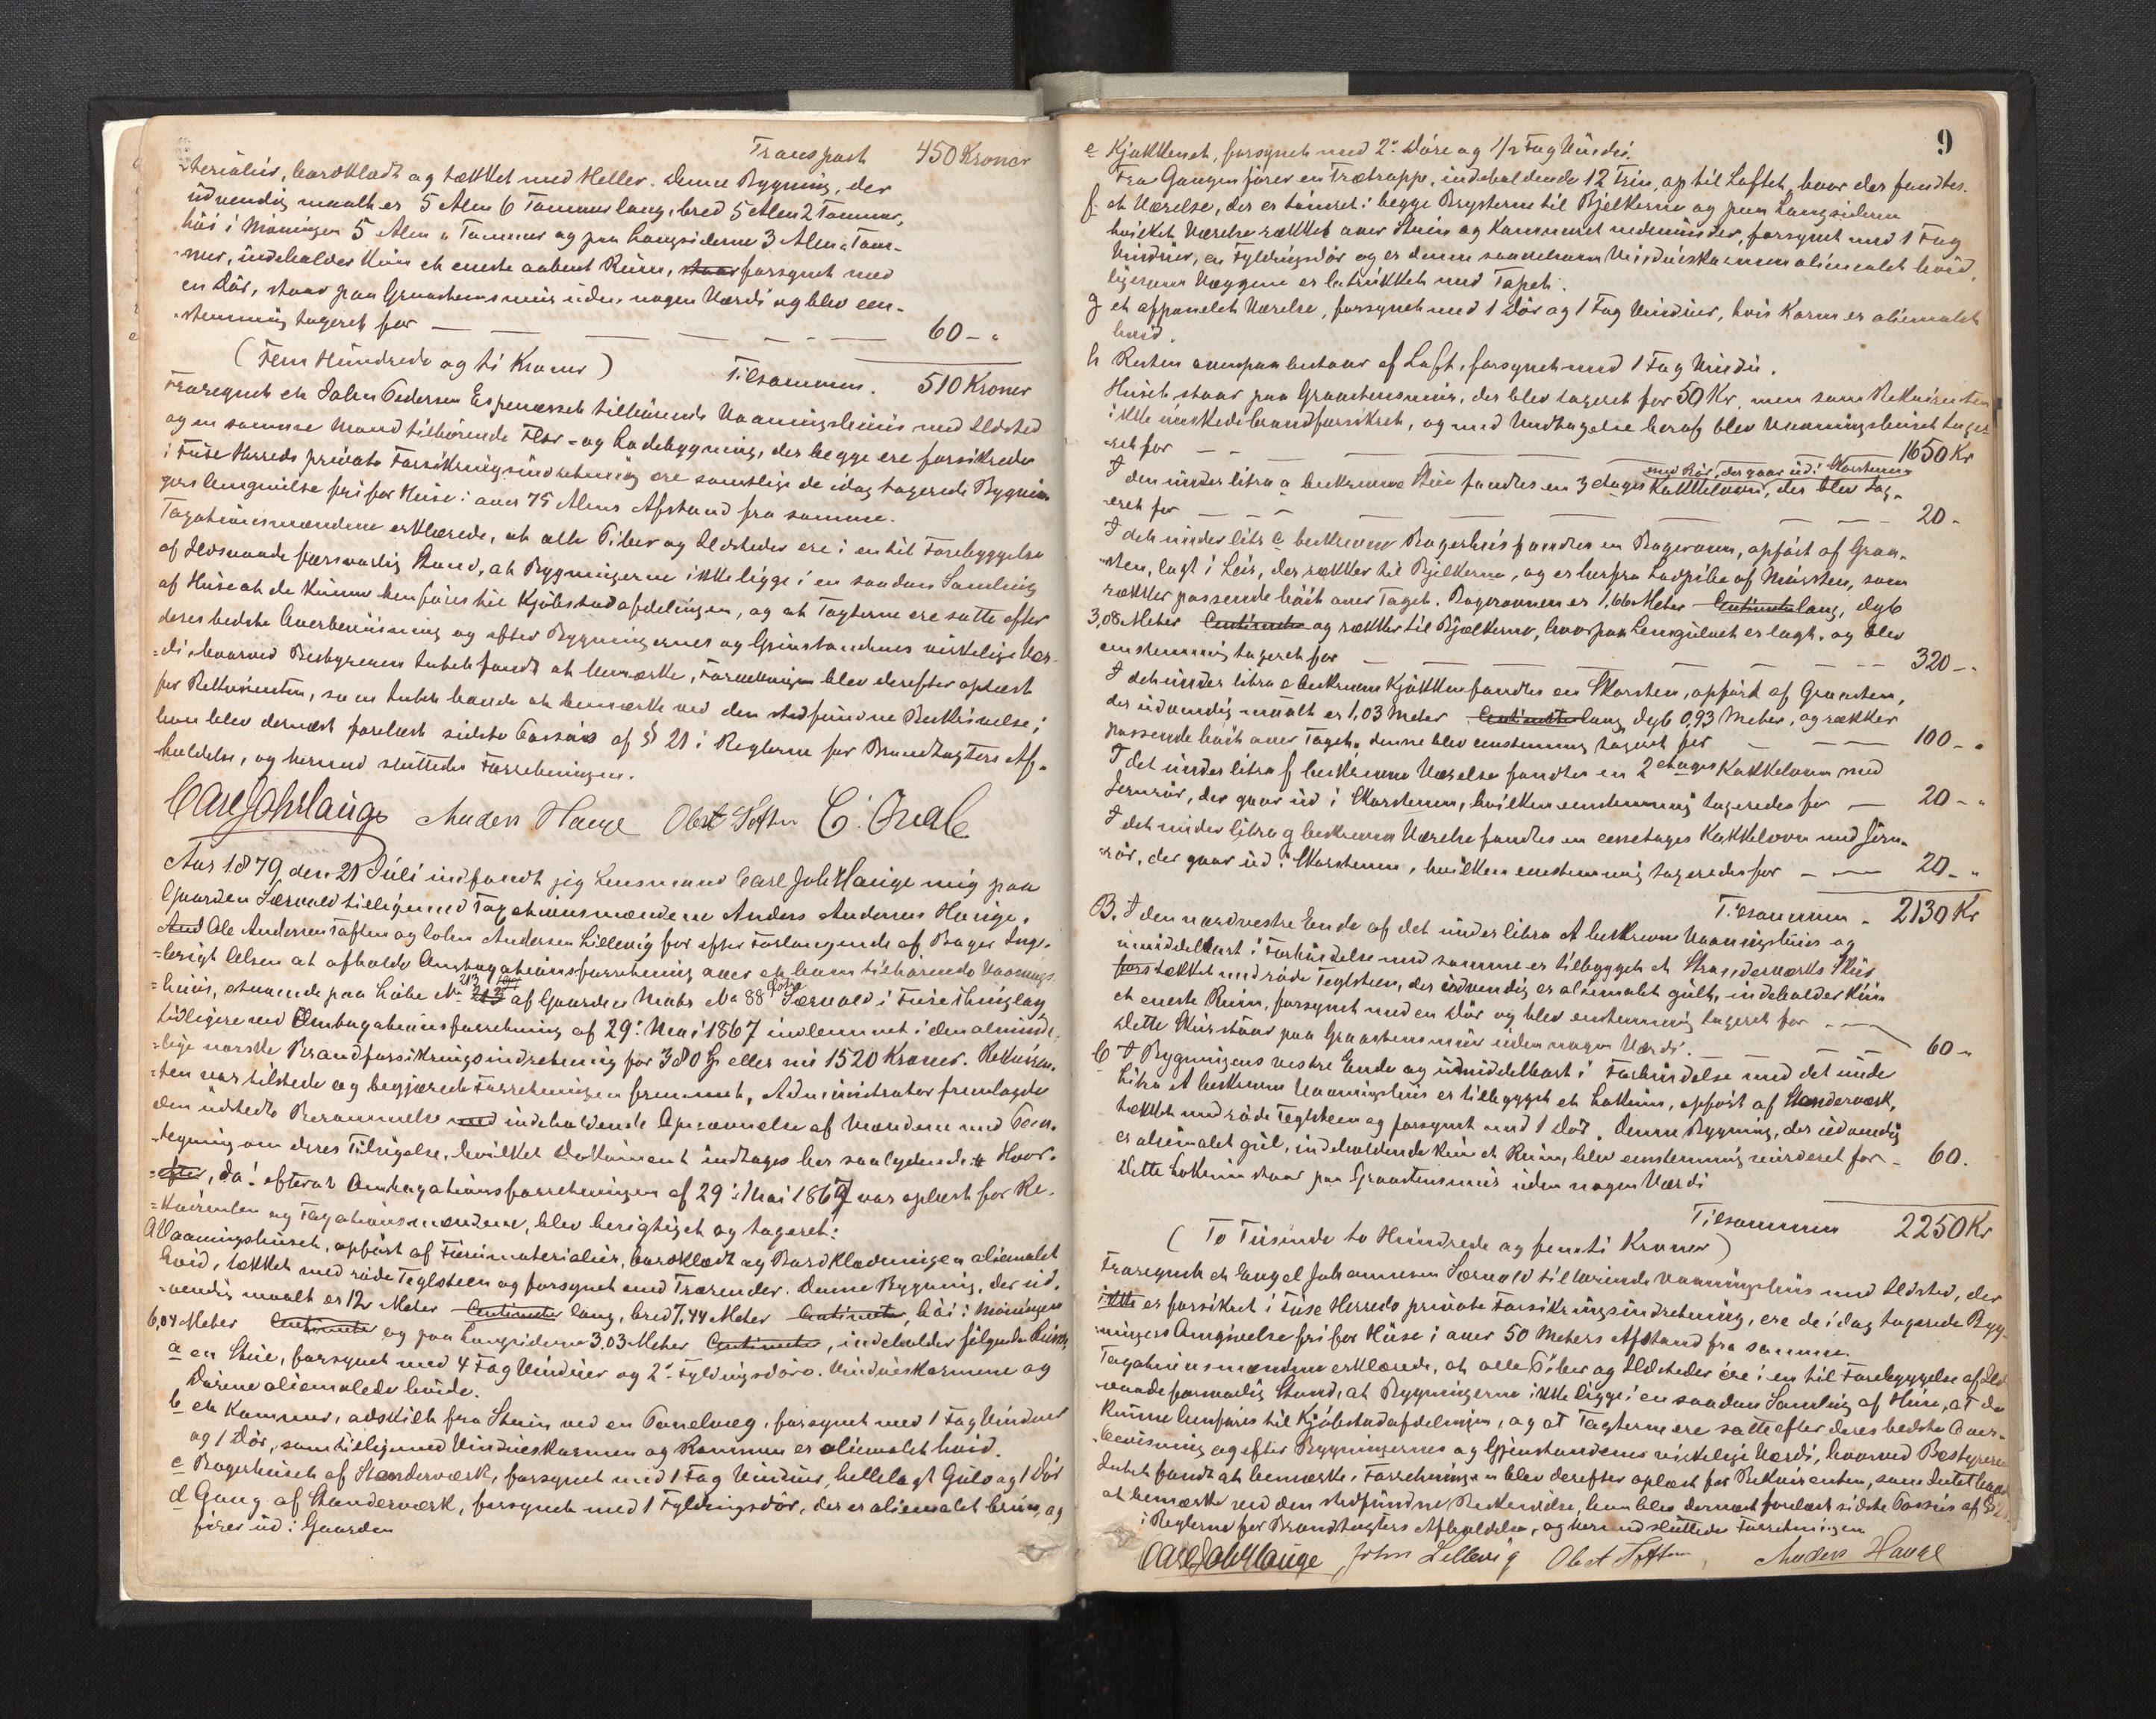 Transport 450 Kroner
-terialier, bordklædt og tækket med Heller. Denne Bygning, der
udvendig maalt er 5 Alen 6 Tommer lang, bred 5 Alen 2 Tommer,
höi i Möningen 5 Alen " Tommer og paa Langsiderne 3 Alen " Tom-
mer, indeholder kun et eneste aabent Rum, staar forsynet med
en Dör, staar paa Graastensmur uden nogen Værdi og blev een-
stemmig taxeret for — — — — — 60 - "
(Fem Hundrede og ti Kroner) Tilsammen. 510 Kroner
Fraregnet et John Pedersen Espenesset tilhörende Vaaningshuus med Ildsted
og en samme Mand tilhörende Flor- og Ladebygning, der begge ere forsikrede
i Fuse Herreds private Forsikringsindretning ere samtlige de idag taxerede Bygnin
gers Omgivelse fri for Huse i over 75 Alens Afstand fra samme.
Taxationsmændene erklærede, at alle Piber og Ildsteder ere i en til Forebyggelse
af Ildsvaade forsvarlig Stand, at Bygningerne ikke ligge i en saadan Samling
af Huse at de kunne henføres til Kjöbstadafdelingen, og at Taxterne ere satte efter
deres bedste Overbeviisning og efter Bygningernes og Gjenstandenes virkelige Vær-
=di, hvorved Bestyreren Intet fandt at bemærke, Forretningen blev derefter oplæst
for Rekvirenten, som Intet havde at bemærke ved den stedfundne Beskrivelse;
han blev dernæst forelæst sidste Passus af § 21 i Reglerne for Brandtaxters Af-
holdelse, og hermed sluttedes Forretningen.
Carl Joh Hauge Anders Hauge Ole A Toften
Aar 1879 den 21 Juli indfandt jeg Lensmand Carl Joh Hauge mig paa
Gaarden Særvold tilligemed Taxationsmændene Anders Andersen Hauge,
And Ole Andersen Toften og John Andersen Lillevig for efter Forlangende af Bager Inge-
=brigt Olsen at afholde Omtaxationsforretning over et ham tilhörende Vaanings
=huus, staaende paa Löbe No 213 af Gaarden Matr No 88 Særvold i Fuse Thinglag
tidligere ved Omtaxationsforretning af 29: Mai 1867 indlemmet i den alminde-
=lige norske Brandforsikringsindretning for 380 Sp eller nu 1520 Kroner. Rekviren-
=ten var tilstede og begjærede Forretningen fremmet, Administrator fremlagde
den udstedte Berammelse med indeholdende Opnævnelse af Mændene med Paa-
tegning om deres Tilsigelse, hvilket Dokument indtages her saalydende: Hvor-
=efter, da! efterat Omtaxationsforretningen af 29: Mai 1867 var oplæst for Re-
=kvirenten og Taxationsmændene, blev berigtiget og taxeret:
A Vaaningshuset, opfört af Furumaterialier, bordklædt og Bordklædningen oliemalet
hvid, tækket med röde Teglsteen og forsynet med Trærender. Denne Bygning, der ud-
=vendig maalt er 12 Meter Centimeter lang, bred 7,44 Meter Centimeter, höi i Möningen
6,04 Meter Centimeter og paa Langsiderne 3,03 Meter Centimeter, indeholder fölgende Rum,
a en Stue, forsynet med 4 Fag Vinduer og 2: Fyldingsdöre. Vindueskarmene og
Dörene oliemalede hvide.
b et Kammer, adskilt fra Stuen ved en Panelvæg, forsynet med 1 Fag Vinduer
og 1 Dör, som tilligemed Vindueskarmen og Rammen er oliemalet hvid.
c Bagerhuset af Standerværk, forsynet med 1 Fag Vinduer, hellelagt Gulv og 1 Dör
d Gang af Standerværk, forsynet med 1 Fyldingsdör, der er oliemalet brun, og
förer ud i Gaarden
9
e Kjøkkenet, forsynet med 2: Döre og 1/2 Fag Vindu.
Fra Gangen förer en Trætrappe, indeholdende 12 Trin, op til Loftet, hvor der fandtes.
f. et Værelse, der er tömret i begge Brysterne til Bjelkerne og paa Langsiderne
hvilket Værelse rækket over Stuen og Kammeret nedenunder, forsynet med 1 Fag
Vinduer, en Fyldingsdör og er denne saavelsom Vindueskarmen oliemalet hvid,
ligesom Væggene er betrukket med Tapet.
g et afpanelet Værelse, forsynet med 1 Dör og 1 Fag Vinduer, hvis Karm er oliemalet
hvid.
h Resten ovenpaa bestaar af Loft, forsynet med 1 Fag Vindu.
Huset staar paa Graastensmuur, der blev taxeret for 50 Kr, men som Rekvirenten
ikke önskede brandforsikret, og med Undtagelse heraf blev Vaaningshuset taxe-
ret for — — — — 1650 Kr
med Rör, der gaar ud i Skorstenen
I den under litra a beskrevne Stue fandtes en 3 etages Kakkelovn, der blev tax-
eret for — — — — 20 -
I det under litr c beskrevne Bagerhus fandtes en Bagerovn, opfört af Graa-
sten, lagt i Leir, der rækker til Bjelkerne, og er herfra Ladpibe af Mursten, som
rækker passende höit over Taget. Bagerovnen er 1,66 Meter Centimeter lang, dyb
3,08 Meter Centimeter og rækker til Bjælkerne, hvorpaa Lemgulvet er lagt, og blev
enstemmig taxeret for — — — — 320 - "
I det under litra e beskrevne Kjökken fandtes en Skorsten, opfört af Graasten,
der udvendig maalt er 1,03 Meter Centimeter lang dyb 0,93 Meter, og rækker
passende höit over Taget, denne blev enstemmig taxeret for — — 100 - "
I det under litra f beskrevne Værelse fandtes en 2 etages Kakkelovn med
Jernrör, der gaar ud i Skorstenen, hvilken enstemmig taxeredes for — 20 - "
I det under litra g beskrevne Værelse fandtes en eenetages Kakkelovn med Jern-
rör, der gaar ud i Skorstenen, hvilken enstemmig taxeredes for — — 20 - "
Tilsammen - 2130 Kr
B. I den nordvestre Ende af det under litra A beskrevne Vaaningshuus og
umiddelbart i Forbindelse med samme er tilbygget et Standerværks Skur
tækket med röde Teglsteen, der udvendig er oliemalet gult, indeholder kun
et eneste Rum, forsynet med en Dör og blev enstemmig taxeret for — — 60 -
Dette Skur staar paa Graastensmuur uden nogen Værdi.
C I Bygningens vestre Ende og umiddelbart i Forbindelse med det under
Litra A beskrevne Vaaningshus er tilbygget et Lokum, opfört af Standerværk,
tækket med röde Teglsteen og forsynet med 1 Dör. Denne Bygning, der udvendig
er oliemalet gul, indeholdende kun et Rum, blev enstemmig vurderet for - 60.
Dette Lokum staar paa Graastensmur uden nogen Værdi
Tilsammen 2250 Kr
(To Tusinde to Hundrede og femti Kroner)
Fraregnet et Engel Johannesen Særvold tilhörende Vaaningshuus med Ildsted, der
ikke er forsikret i Fuse Herreds private Forsikringsindretning, ere de i dag taxerede Byg-
ningers Omgivelse fri for Huse i over 50 Meters Afstand fra samme.
Taxationsmændene erklærede, at alle Piber og Ildsteder ere i en til Forebyggelse af Ild-
vaade forsvarlig Stand, at Bygningerne ikke ligge i en saadan Samling af Huse, at de
kunne henföres til Kjöbstadafdelingen, og at Taxterne ere satte efter deres bedste Over-
beviisning og efter Bygningernes og Gjenstandenes virkelige Værdi, hvorved Bestyreren
Intet fandt at bemærke. Forretningen blev derefter oplæst for Rekvirenten, som Intet havde
at bemærke ved den stedfundne Beskrivelse, han blev dernæst forelæst sidste Passus af § 21
i Reglerne for Brandtaxters Afholdelse, og hermed sluttedes Forretningen
Carl Joh Hauge John Lillevig Ole A Toften, Anders Hauge